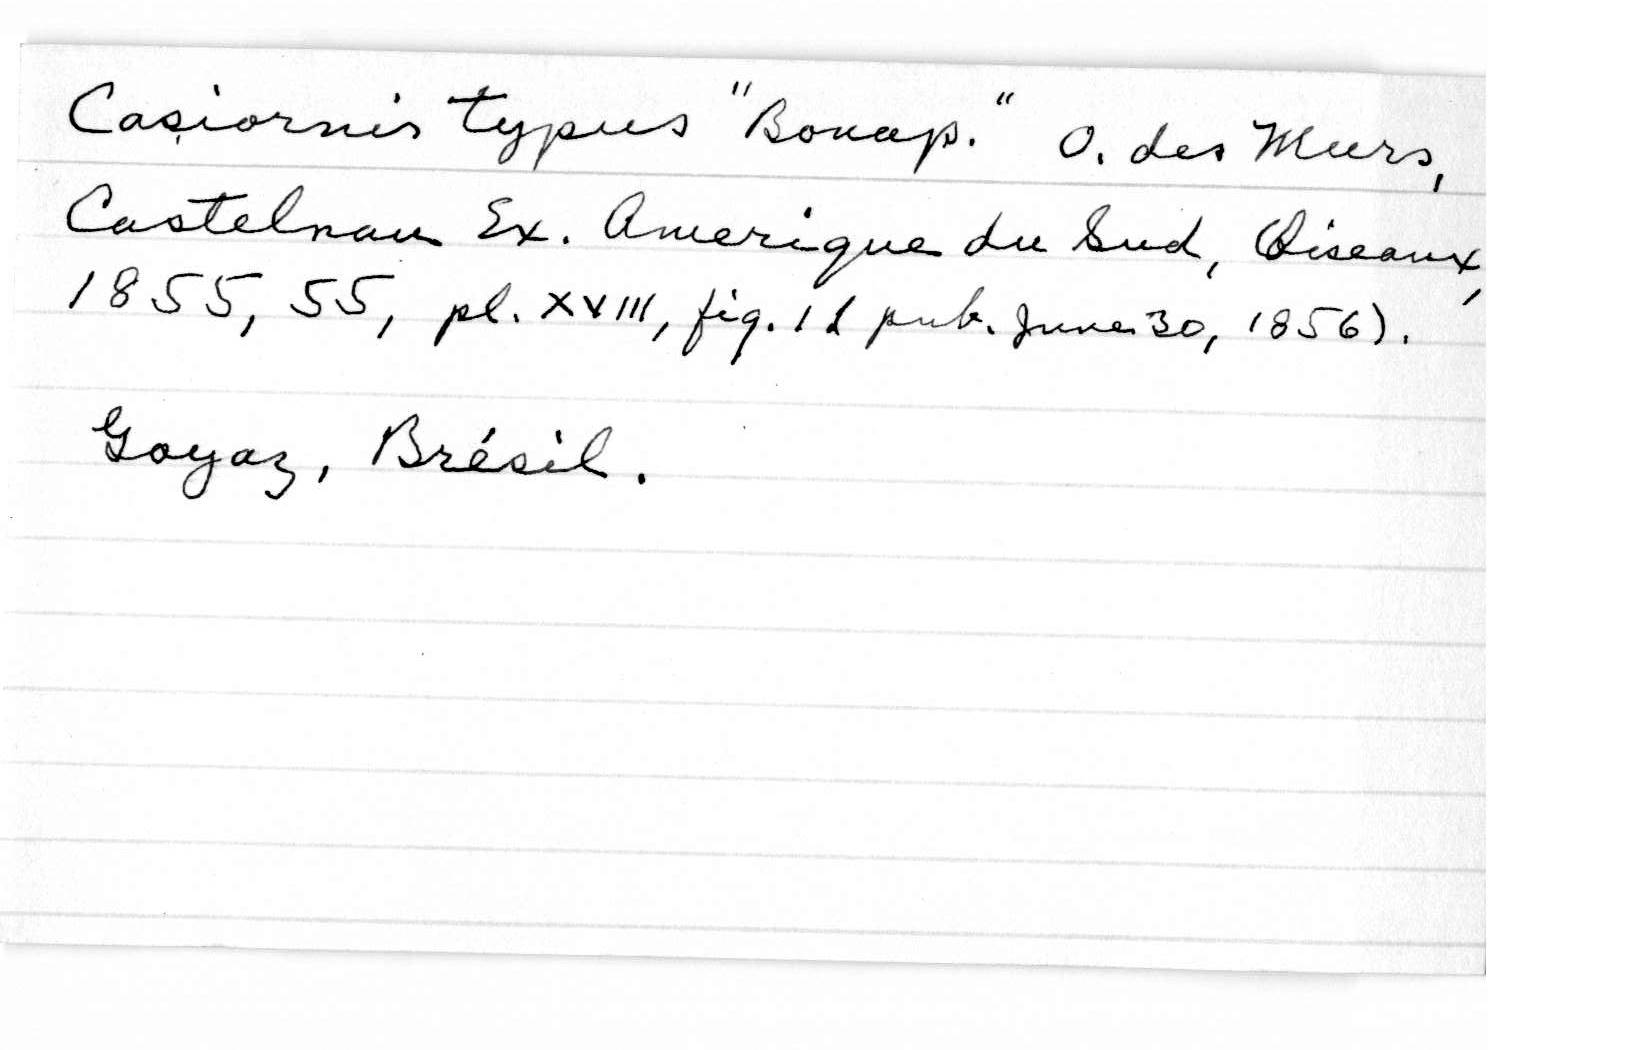 Casiornis typus "Bonap." O. des Murs,
Castelnau Ex. Amerique du Sud, Oiseaux,
1855, 55, pl. XVIII, fig. 1 ( pub. June 30, 1856).
Goyaz, Brésil.